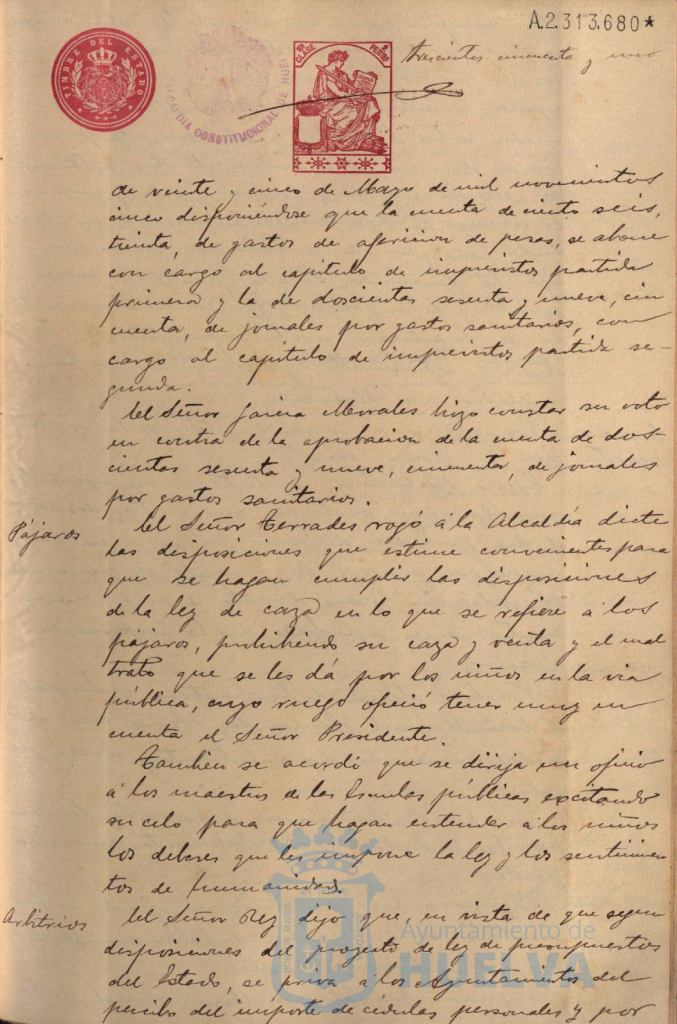 A.2.313.680*
TIMBRE DEL ESTADO
ALCALDIA CONSTITUCIONAL DE HUELVA
CLASE
PESETAS
trescientos cincuenta y uno
de veinte y cinco de Mayo de mil novecientos
cinco disponiéndose que la cuenta de ciento seis,
treinta, de gastos de afericion de pesas, se abone
con cargo al capítulo de imprevistos partida
primera y la de doscientas sesenta y nueve, cin
cuenta, de jornales por gastos sanitarios, con
cargo al capítulo de imprevistos partida se-
gunda.
El Señor García Morales hizo constar su voto
en contra de la aprobacion de la cuenta de dos-
cientas sesenta y nueve, cincuenta, de jornales
por gastos sanitarios.
Pájaros
El Señor Terrades rogó á la Alcaldía dicte
las disposiciones que estime convenientes para
que se hagan cumplir las disposiciones
de la ley de caza en lo que se refiere á los
pájaros, prohibiendo su caza y venta y el mal
trato que se les dá por los niños en la via
pública, cuyo ruego ofreció tener muy en
cuenta el Señor Presidente.
Tambien se acordó que se dirija un oficio
á los maestros de las Escuelas públicas excitando
su celo para que hagan entender á los niños
los deberes que les impone la ley y los sentimien
tos de humanidad.
Arbitrios
El Señor Rey dijo que, en vista de que segun
disposiciones del proyecto de ley de presupuestos
del Estado, se priva á los Ayuntamientos del
percibo del importe de cédulas personales y por
Ayuntamiento de
HUELVA